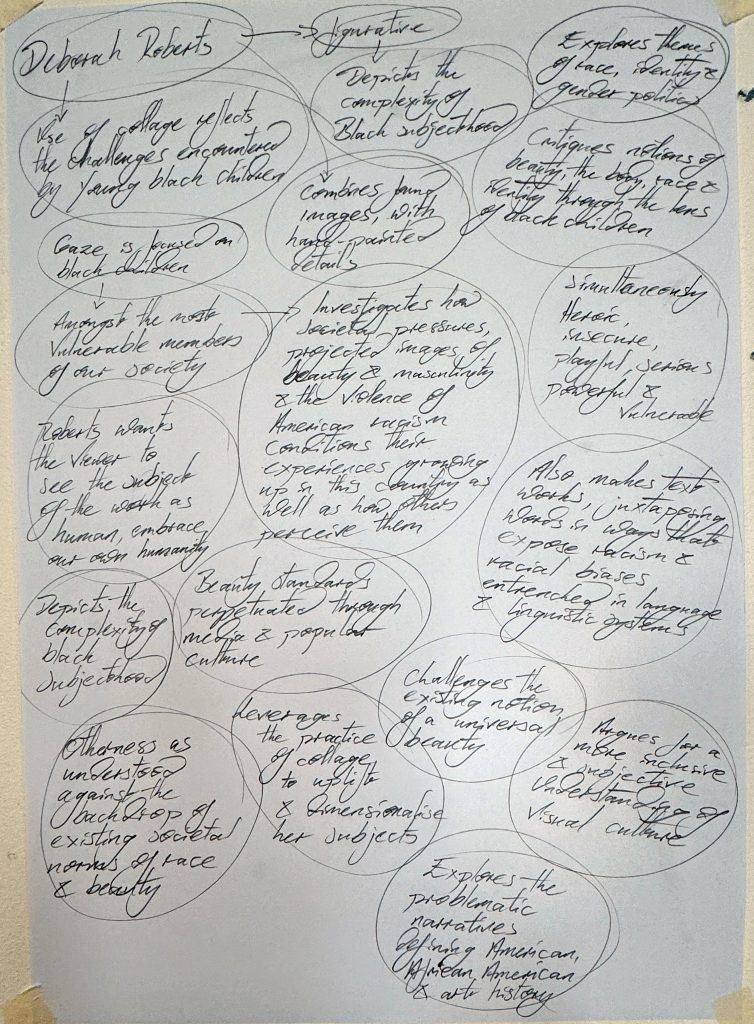 Deborah Roberts
figurative
Depicts the
complexity of
Black subjecthood
Explores themes
of race, identity &
gender politics
Use of collage reflects
the challenges encountered
by young black children
Combines found
images, with
hand-painted
details
Critiques notions of
beauty, the body, race &
identity through the lens
of black children
Gaze is focused on
black children
Amongst the most
vulnerable members
of our society
Investigates how
societal pressures,
projected images of
beauty & masculinity
& the violence of
American racism
conditions their
experiences growing
up in this country as
well as how others
perceive them
Simultaneously
Heroic,
insecure,
playful, serious
powerful &
vulnerable
Roberts wants
the viewer to
see the subject
of the work as
human, embrace
our own humanity
Also makes text
works, juxtaposing
words in ways that
expose racism &
racial biases
entrenched in language
& linguistic systems
Depicts the
complexity of
black
subjecthood
Beauty standards
perpetuated through
media & popular
culture
Challenges the
existing notion
of a universal
beauty
Otherness as
understood
against the
backdrop of
existing societal
norms of race
& beauty
Leverages
the practice
of collage
to uplift
& dimensionalise
her subjects
Argues for a
more inclusive
& subjective
understanding of
visual culture
Explores the
problematic
narratives
defining American,
African American
& art history